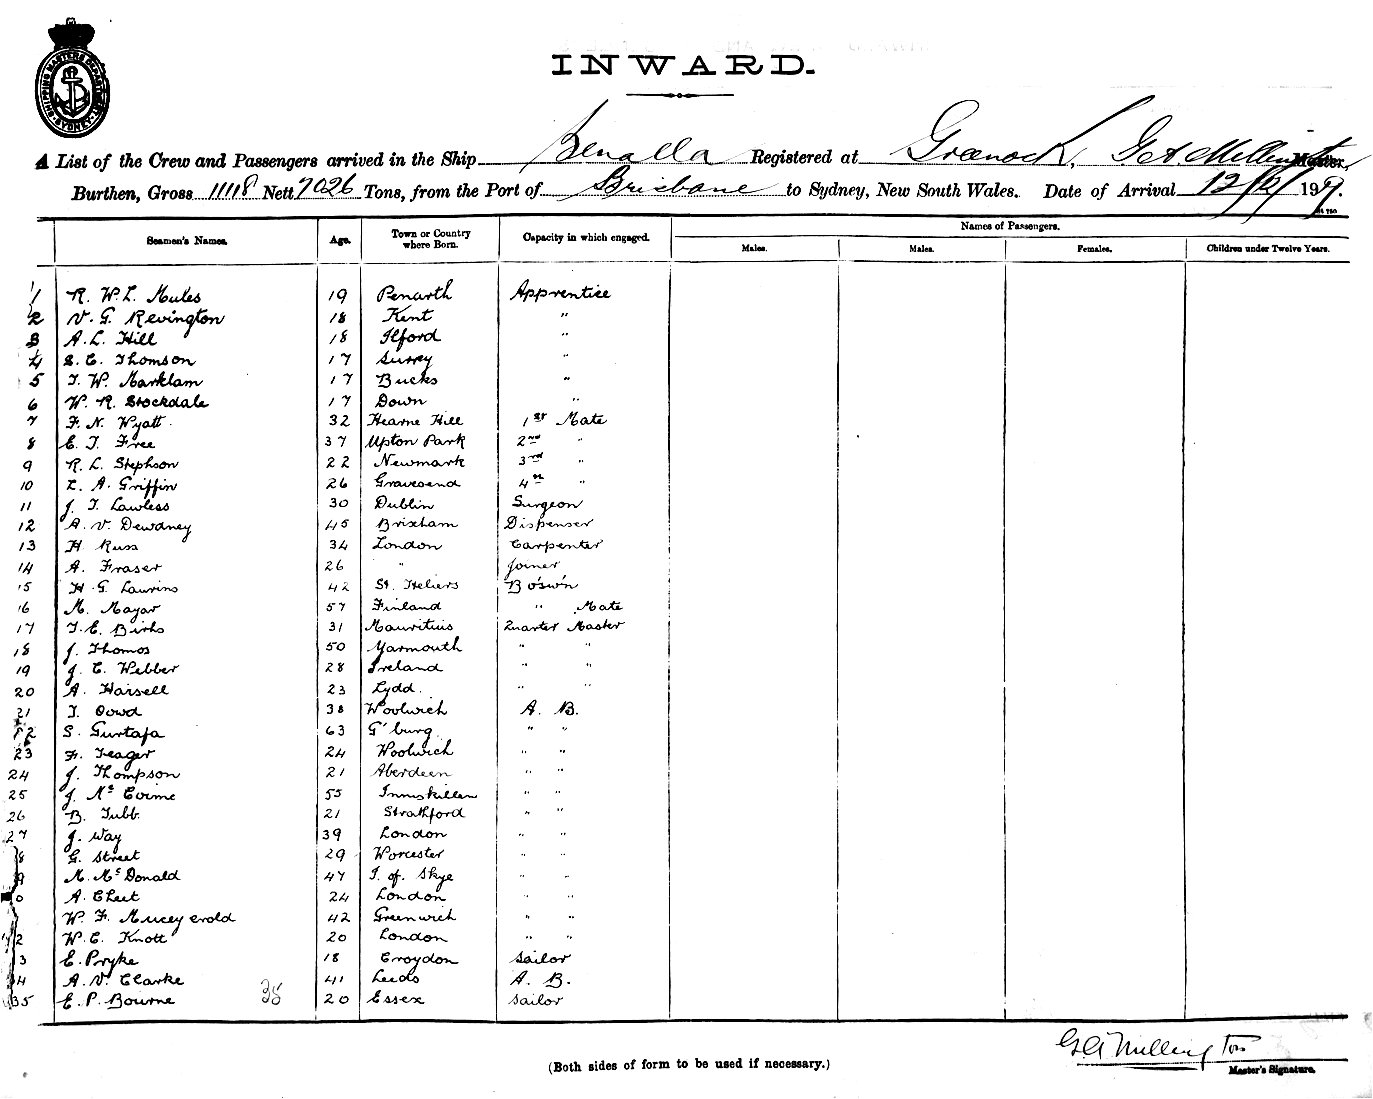 SHIPPING MASTERS DEPARTMENT SYDNEY
INWARD.
A List of the Crew and Passengers arrived in the Ship Benalla Registered at Greenock, G A Millington Master,
Burthen, Gross 11118 Nett 7026 Tons, from the Port of Brisbane to Sydney, New South Wales. Date of Arrival 191
Seamen's Names. Age. Town or Country where Born. Capacity in which engaged. Names of Passengers.
Males. Males. Females. Children under Twelve Years.
1 R. W. L. Mules 19 Penarth Apprentice
2 V. G. Revington 18 Kent "
3 A. L. Hill 18 Ilford "
4 S. E. Thomson 17 Surry "
5 T. W. Marklam 17 Bucks "
6 W. R. Stockdale 17 Down "
7 F. N. Wyatt 32 Hearne Hill 1st Mate
8 E. T. Free 37 Upton Park 2nd "
9 R. L. Stephson 22 Newmark 3rd "
10 L. A. Griffin 26 Gravesend 4th "
11 J. T. Lawless 30 Dublin Surgeon
12 A. V. Dewdney 45 Brixham Dispenser
13 H Russ 34 London Carpenter
14 A. Fraser 26 " Joiner
15 H. G. Laurins 42 St. Heliers Bo'sw'n
16 M. Mayar 57 Finland " Mate
17 T. E. Birks 31 Mauritius Quarter Master
18 J. Thomas 50 Yarmouth " "
19 J. E. Webber 28 Ireland " "
20 A. Harsell 23 Lydd. " "
21 T. Dowd 38 Woolwich A. B.
22 S. Gustafa 63 G'burg " "
23 F. Feager 24 Woolwich " "
24 J. Thompson 21 Aberdeen " "
25 J. Mc 55 Inniskillen " "
26 B. Tubb. 21 Strathford " "
27 J. Way 39 London " "
8 G. Street 29 Worcester " "
9 M. McDonald 47 I. of. Skye " "
0 A. Cheet 24 London " "
W. F. 42 Greenwich " "
2 W. E. Knott 20 London " "
3 E. Pryke 18 Croydon Sailor
4 A. V. Clarke 41 Leeds A. B.
35 E. P. Bourne 35 20 Essex Sailor
G A Millington
Master's Signature.
(Both sides of form to be used if necessary.)